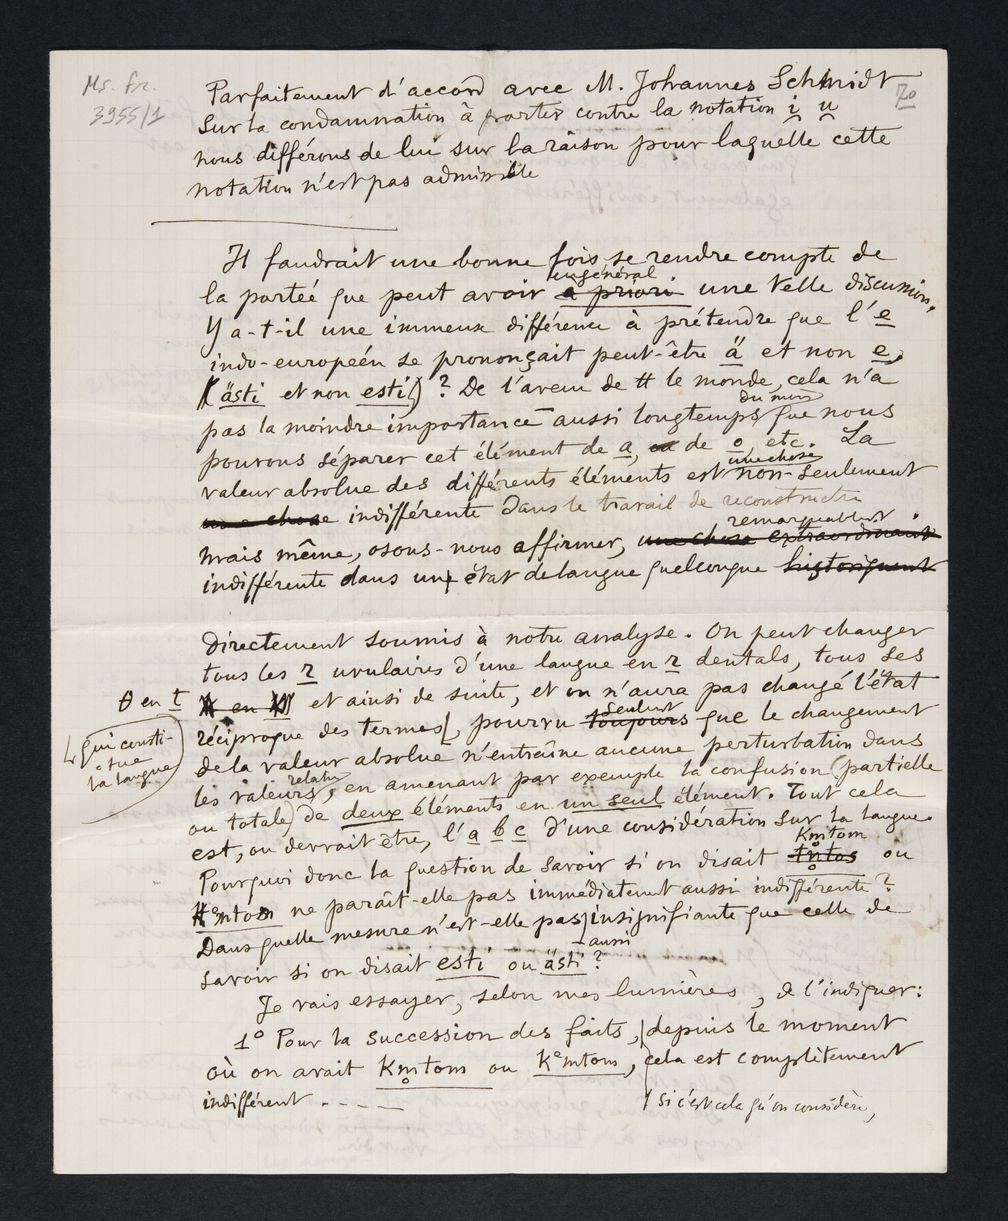 Ms. fr.
3955/1
70
Parfaitement d'accord avec M. Johannes Schmidt
sur la condamnation à porter contre la notation i̯ u̯
nous différons de lui sur la raison pour laquelle cette
notation n'est pas admissible
Il faudrait une bonne fois se rendre compte de
en général
la portée que peut avoir a priori une telle discussion.
Y a-t-il une immense différence à prétendre que l'e
indo-européen se prononçait peut-être ä et non e,
(ästi et non esti) ? De l'aveu de tt le monde, cela n'a
du moins
pas la moindre importance aussi longtemps que nous
pouvons séparer cet élément de a, de o etc. La
une chose
valeur absolue des différents éléments est non-seulement
une chose indifférente dans le travail de reconstructn
remarquablent
mais même, osons-nous affirmer, une chose extraordinairt
indifférente dans un état de langue quelconque historiquent
directement soumis à notre analyse. On peut changer
tous les r uvulaires d'une langue en r dentals, tous ses
θ en t
et ainsi de suite, et on n'aura pas changé l'état
seulemt
réciproque des termes, pourvu toujours que le changement
qui consti-
tue
la langue
de la valeur absolue n'entraîne aucune perturbation dans
relatives
les valeurs, en amenant par exemple la confusion (partielle
ou totale) de deux éléments en un seul élément. Tout cela
est, ou devrait être, l'a b c d'une considération sur la langue.
Km̥tom
Pourquoi donc la question de savoir si on disait tn̥tos ou
Kᵉmtom ne paraît-elle pas immédiatement aussi indifférente ?
Dans quelle mesure n'est-elle pas insignifiante que celle de
aussi
savoir si on disait esti ou ästi ?
Je vais essayer, selon mes lumières, de l'indiquer :
1° Pour la succession des faits, depuis le moment
où on avait Km̥tom ou Kᵉmtom, cela est complètement
indifférent - - - -
si c'est cela qu'on considère,